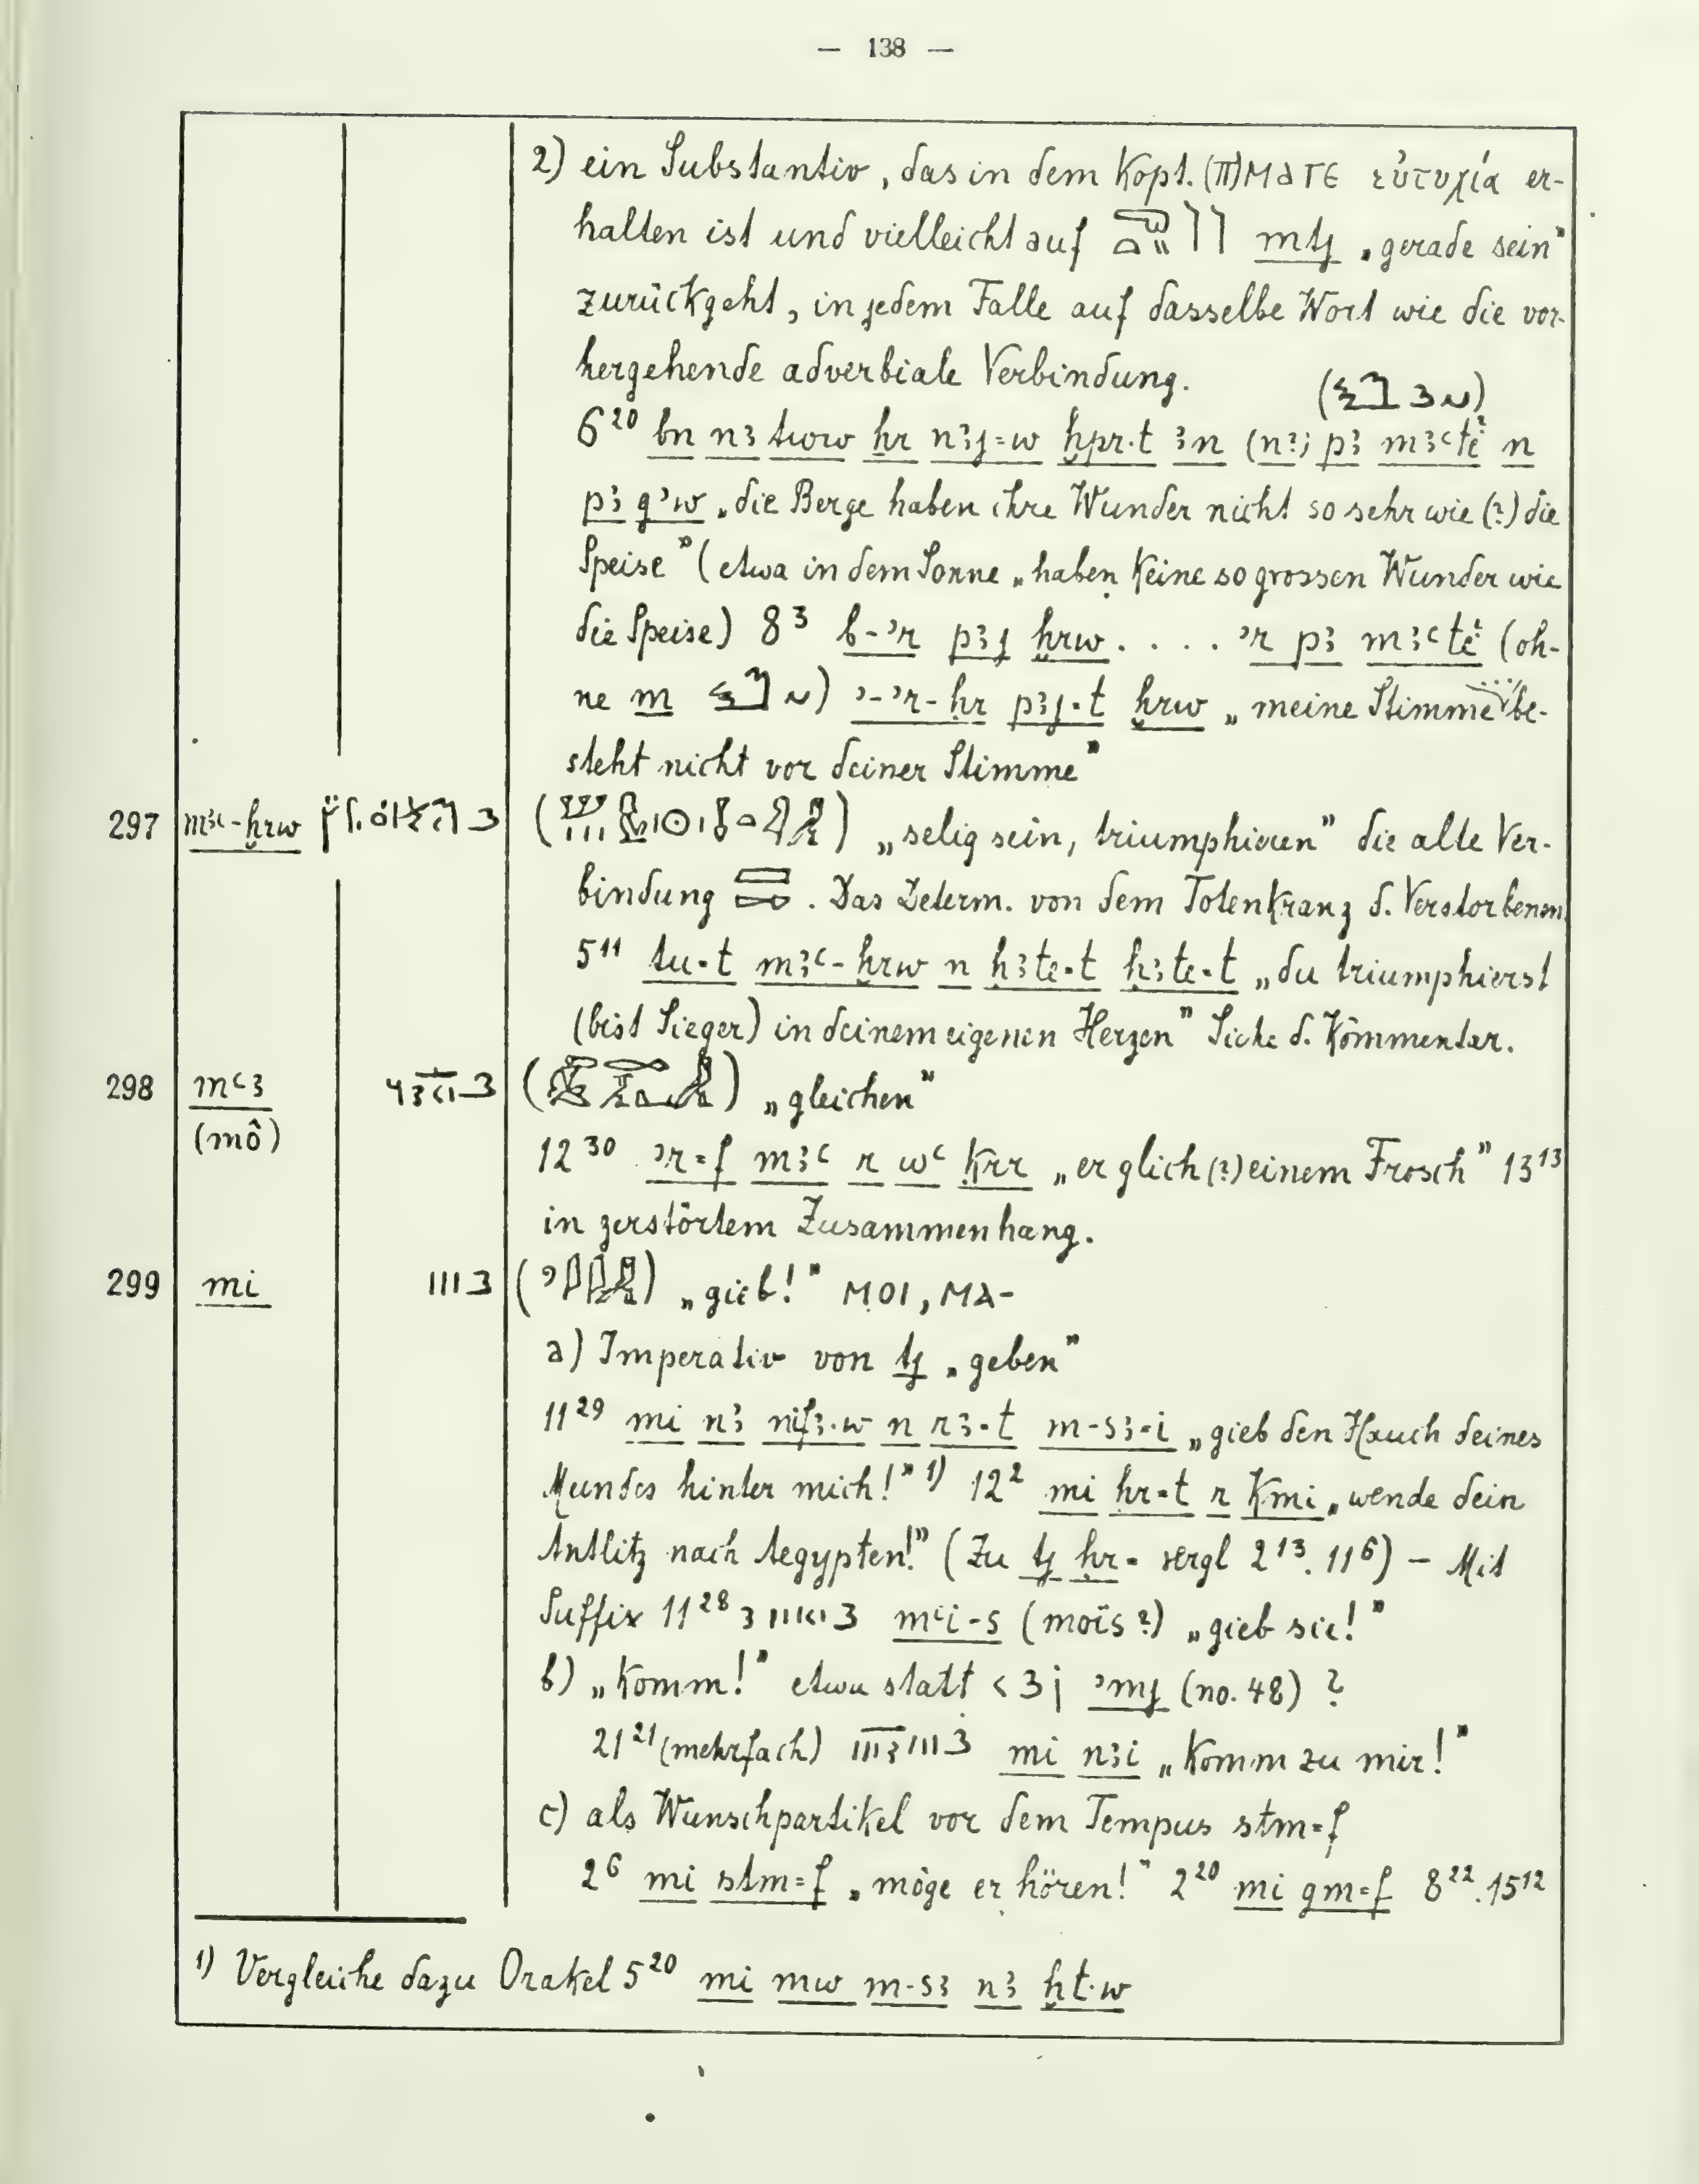 — 138 —
2) ein Substantiv, das in dem Kopt. (Π)ΜΑΤΕ εὐτυχία er-
halten ist und vielleicht auf mtj „gerade sein"
zurückgeht, in jedem Falle auf dasselbe Wort wie die vor-
hergehende adverbiale Verbindung.
6²⁰ bn nꜣ tww ḥr nꜣj=w ḫpr·t ꜣn (n?; pꜣ mꜣꜥte n
pꜣ qʾw „die Berge haben ihre Wunder nicht so sehr wie (?) die
Speise" (etwa in dem Sonne „haben Keine so grossen Wunder wie
die Speise) 8³ b-ʾr pꜣj ḫrw . . . . ʾr pꜣ mꜣꜥte (oh-
ne m ) ʾ-ʾr-ḥr pꜣj·t ḫrw „meine Stimme be-
steht nicht vor deiner Stimme"
297 mꜣꜥ-ḫrw ( ) „selig sein, triumphieren" die alte Ver-
bindung . Das Determ. von dem Totenkranz d. Verstorbenen
5¹¹ tu·t mꜣꜥ-ḫrw n ḥꜣte·t ḥꜣte·t „du triumphierst
(bist Sieger) in deinem eigenen Herzen" Siehe d. Kommentar.
298 mꜥꜣ ( ) „gleichen"
(mô)
12³⁰ ʾr=f mꜣꜥ r wꜥ Krr „er glich (?) einem Frosch" 13¹³
in zerstörtem Zusammenhang.
299 mi ( ) „gieb!" ΜΟΙ, ΜΑ-
a) Imperativ von tj „geben"
11²⁹ mi nꜣ nifꜣ·w n rꜣ·t m-sꜣ=i „gieb den Hauch deines
Mundes hinter mich!" ¹) 12² mi ḥr=t r Kmi „wende dein
Antlitz nach Aegypten!" (Zu tj ḥr= vergl 2¹³. 11⁶) – Mit
Suffix 11²⁸ mꜥi-s (moïs ?) „gieb sie!"
b) „Komm!" etwa statt ʾmj (no. 48) ?
21²¹ (mehrfach) mi nꜣi „Komm zu mir!"
c) als Wunschpartikel vor dem Tempus stm=f
2⁶ mi stm=f „möge er hören!" 2²⁰ mi gm=f 8²². 15¹²
¹) Vergleiche dazu Orakel 5²⁰ mi mw m-sꜣ nꜣ ḫt·w